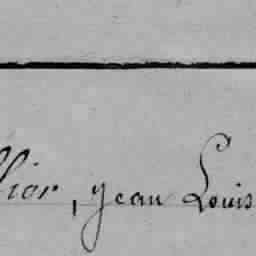 lior, Jean Louis